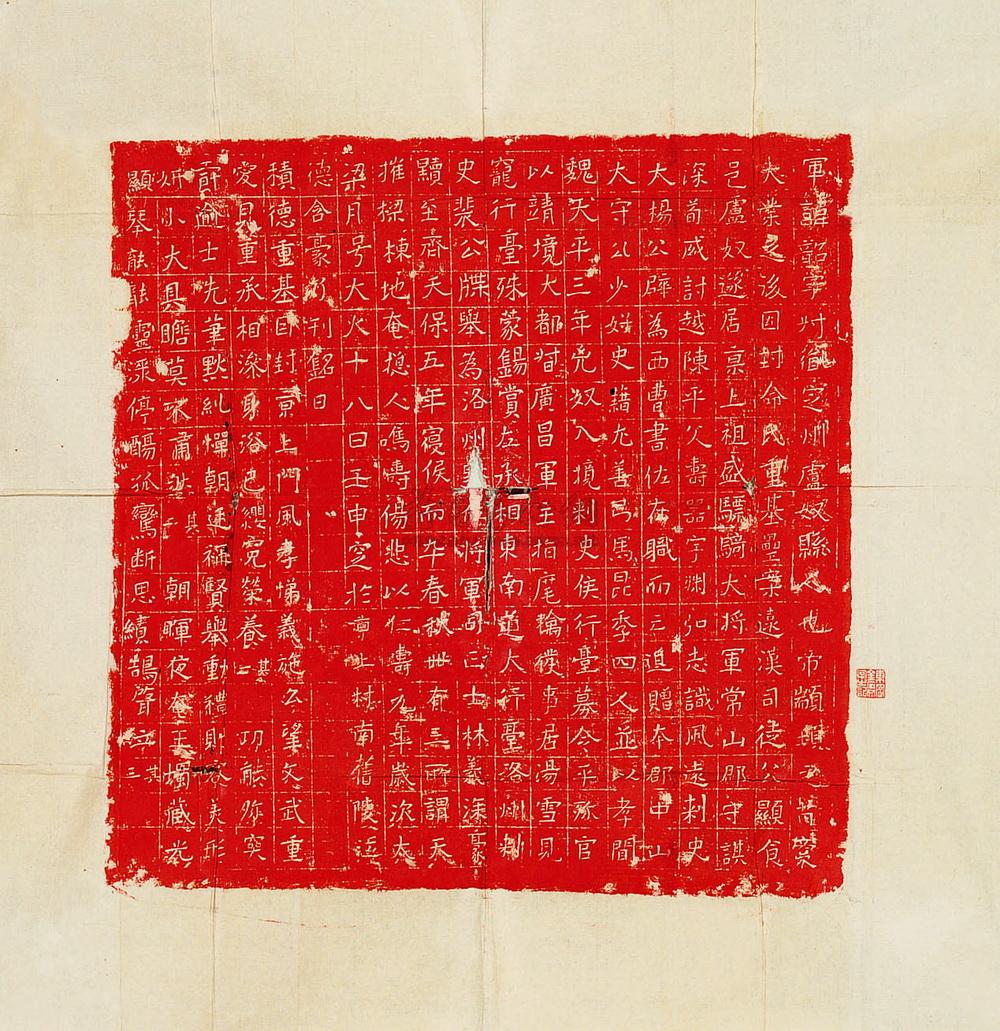 軍諱韶字州都定州盧奴縣人也帝顓頊之苗裔
大業之後因封命氏重基疊葉遠漢司徒公顯食
邑盧奴遂居京上祖盛驃騎大將軍常山郡守謨
深荀威計越陳平父壽器宇淵弘志識風遠刺史
大揚公辟為西曹書佐在職而亡追贈本郡中山
大守公少好史籍尤善弓馬昆季四人並以孝聞
魏天平三年兇奴入境刺史侯行臺募令平官
以靖境大都督廣昌軍主指麾擒獲事居湯雪見
寵行臺殊蒙錫賞左丞相東南道大行臺洛州刺
史裴公牒舉為洛州行將軍司士林義深豪
黷至齊天保五年寢侯而卒春秋卌有三所謂天
摧樑棟地奄人嗚疇傷悲以仁壽九年歲次大
梁月号大火十八日壬申窆於山林南舊陵
德含豪乃刊銘曰
積德重基因封京上門風孝悌義公望文武重
愛見重承相身浴色纓冕榮養其二功能弥突
許逾士先筆默糺憚朝廷稱賢舉動禮則美形
小大具瞻莫不肅其朝暉夜玉燭藏
顯琴靈停醻孤鸞斷思績鵠聲其三